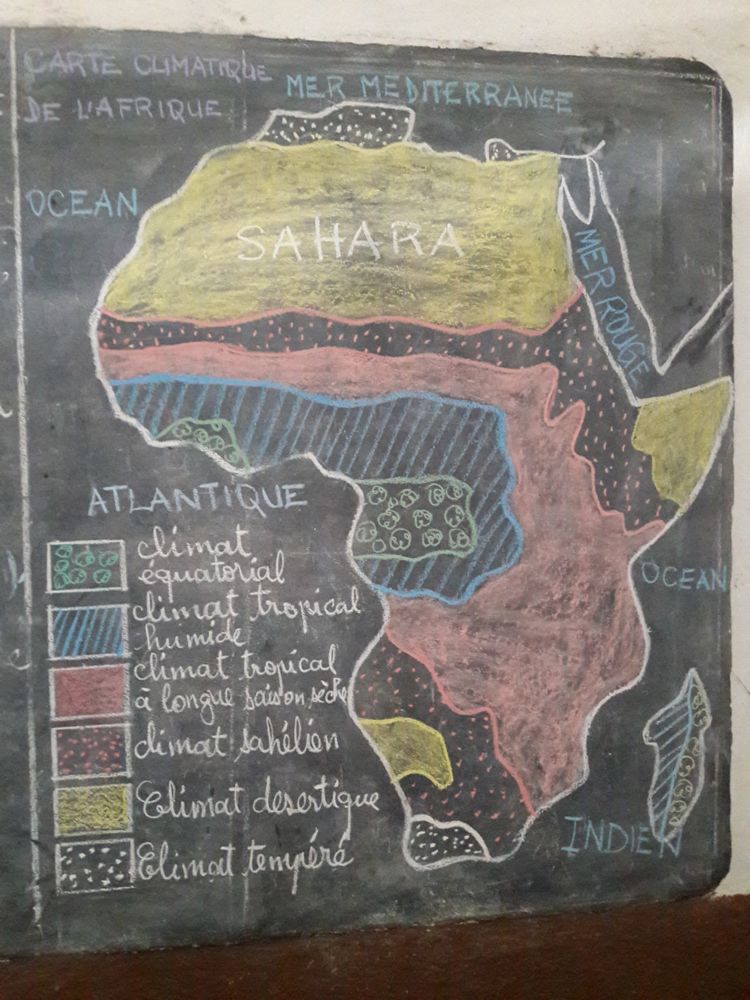 CARTE CLIMATIQUE
DE L'AFRIQUE
MER MEDITERRANEE
OCEAN
SAHARA
MER ROUGE
ATLANTIQUE
OCEAN
INDIEN
climat
équatorial
climat tropical
humide
climat tropical
à longue saison sèche
climat sahélien
Climat desertique
Climat tempéré